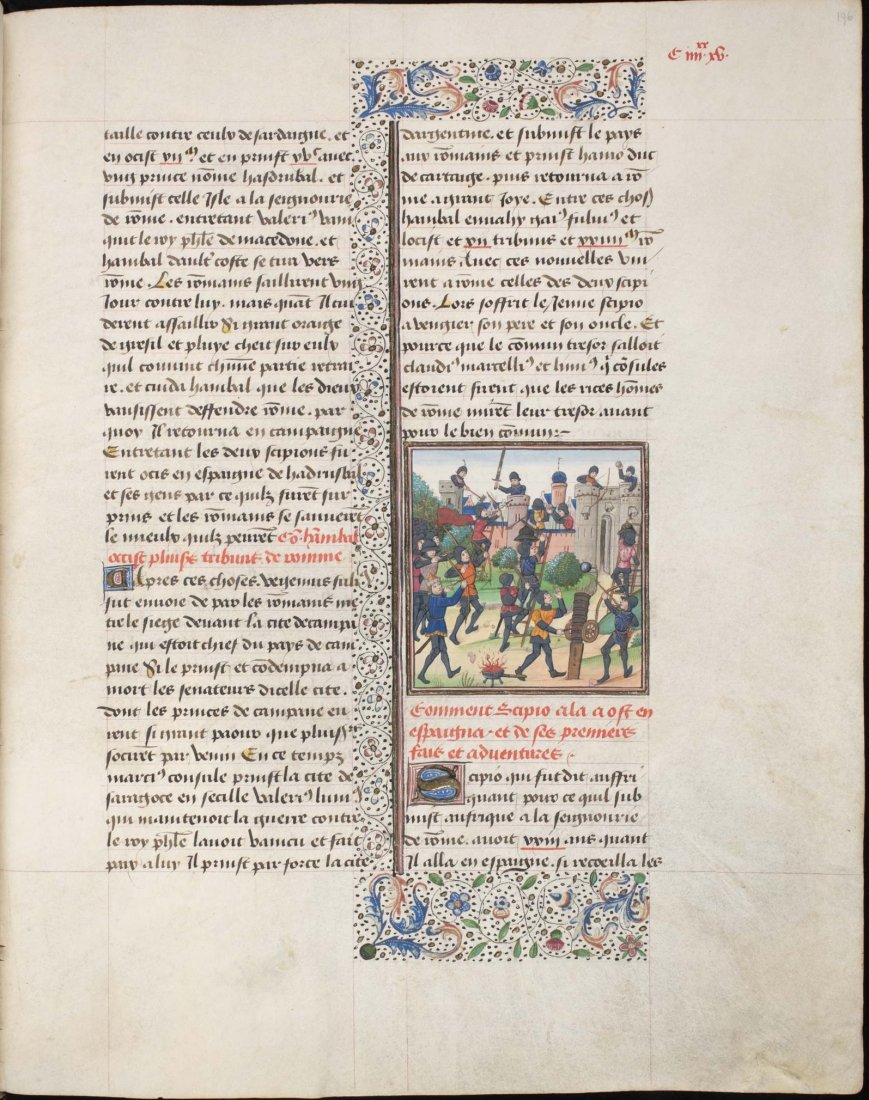 196
C iiii xx xv.
taille contre ceulx de sardaigne. et
en ocist xii m et en prinst xv c avec
ung prince nōme hasdrubal. et
submist celle Isle a la seignourie
de rōme. entretant valeri9 vain
quit le roy ph̄le de macedone. et
hanibal daultr coste se tira vers
rōme. Les rōmains saillirent ung
Jour contre luy. mais quāt Il cui
derent assaillir Si grant oraige
de gresil et pluye cheit sur eulx
quil convint chūne partie retrai
re. et cuida hanibal que les dieux
vausissent deffendre rōme. par
quoy Il retourna en campaigne
Entretant les deux scipions fu
rent ocis en espaigne de hadrusbal
et ses gens par ce quilz furēt sur
prins et les rōmains se sauverēt
le mieulx quilz peurēt Cō. hanibal
occist pluiss tribuns de romme
Apres ces choses vegenius ful
fut envoie de par les rōmains me
tre le siege devant la cite de campa
ne qui estoit chief du pays de cam
pane Si le prinst et cōdempna a
mort les senateurs dicelle cite.
dont les princes de campane eu
rent si grant paour que pluiss
socirēt par venin En ce tempz
marci9 consule prinst la cite de
saragoce en secille valeri9 luni9
qui maintenoit la guerre contre
le roy ph̄le lavoit vaincu et fait
paix a luy Il prinst par force la cite
dargentine. et submist le pays
aux rōmains et prinst hanio duc
de cartaige. puis retourna a rō
me a grant Joye. Entre ces chos
hanibal envahy gai9 fulvi9 et
locist et xii tribuns et xxiiii m rō
mains Avec ces nouvelles vin
rent a rōme celles des deux scipi
ons. Lors soffrit le Jenne scipio
a vengier son pere et son oncle. Et
pource que le cōmun tresor falloit
claudi9 marcelli9 et livi9 q̄ cōsules
estoient firent que les rices hōmes
de rōme mirēt leur tresor avant
pour le bien cōmun
Comment Scipio ala a ost en
espaigna. et de ses premiers
fais et adventures.
Scipio qui fut dit auffri
quant pour ce quil sub
mist aufrique a la seignourie
de rōme. avoit xxiiii ans quant
Il alla en espaigne. si recoeilla les